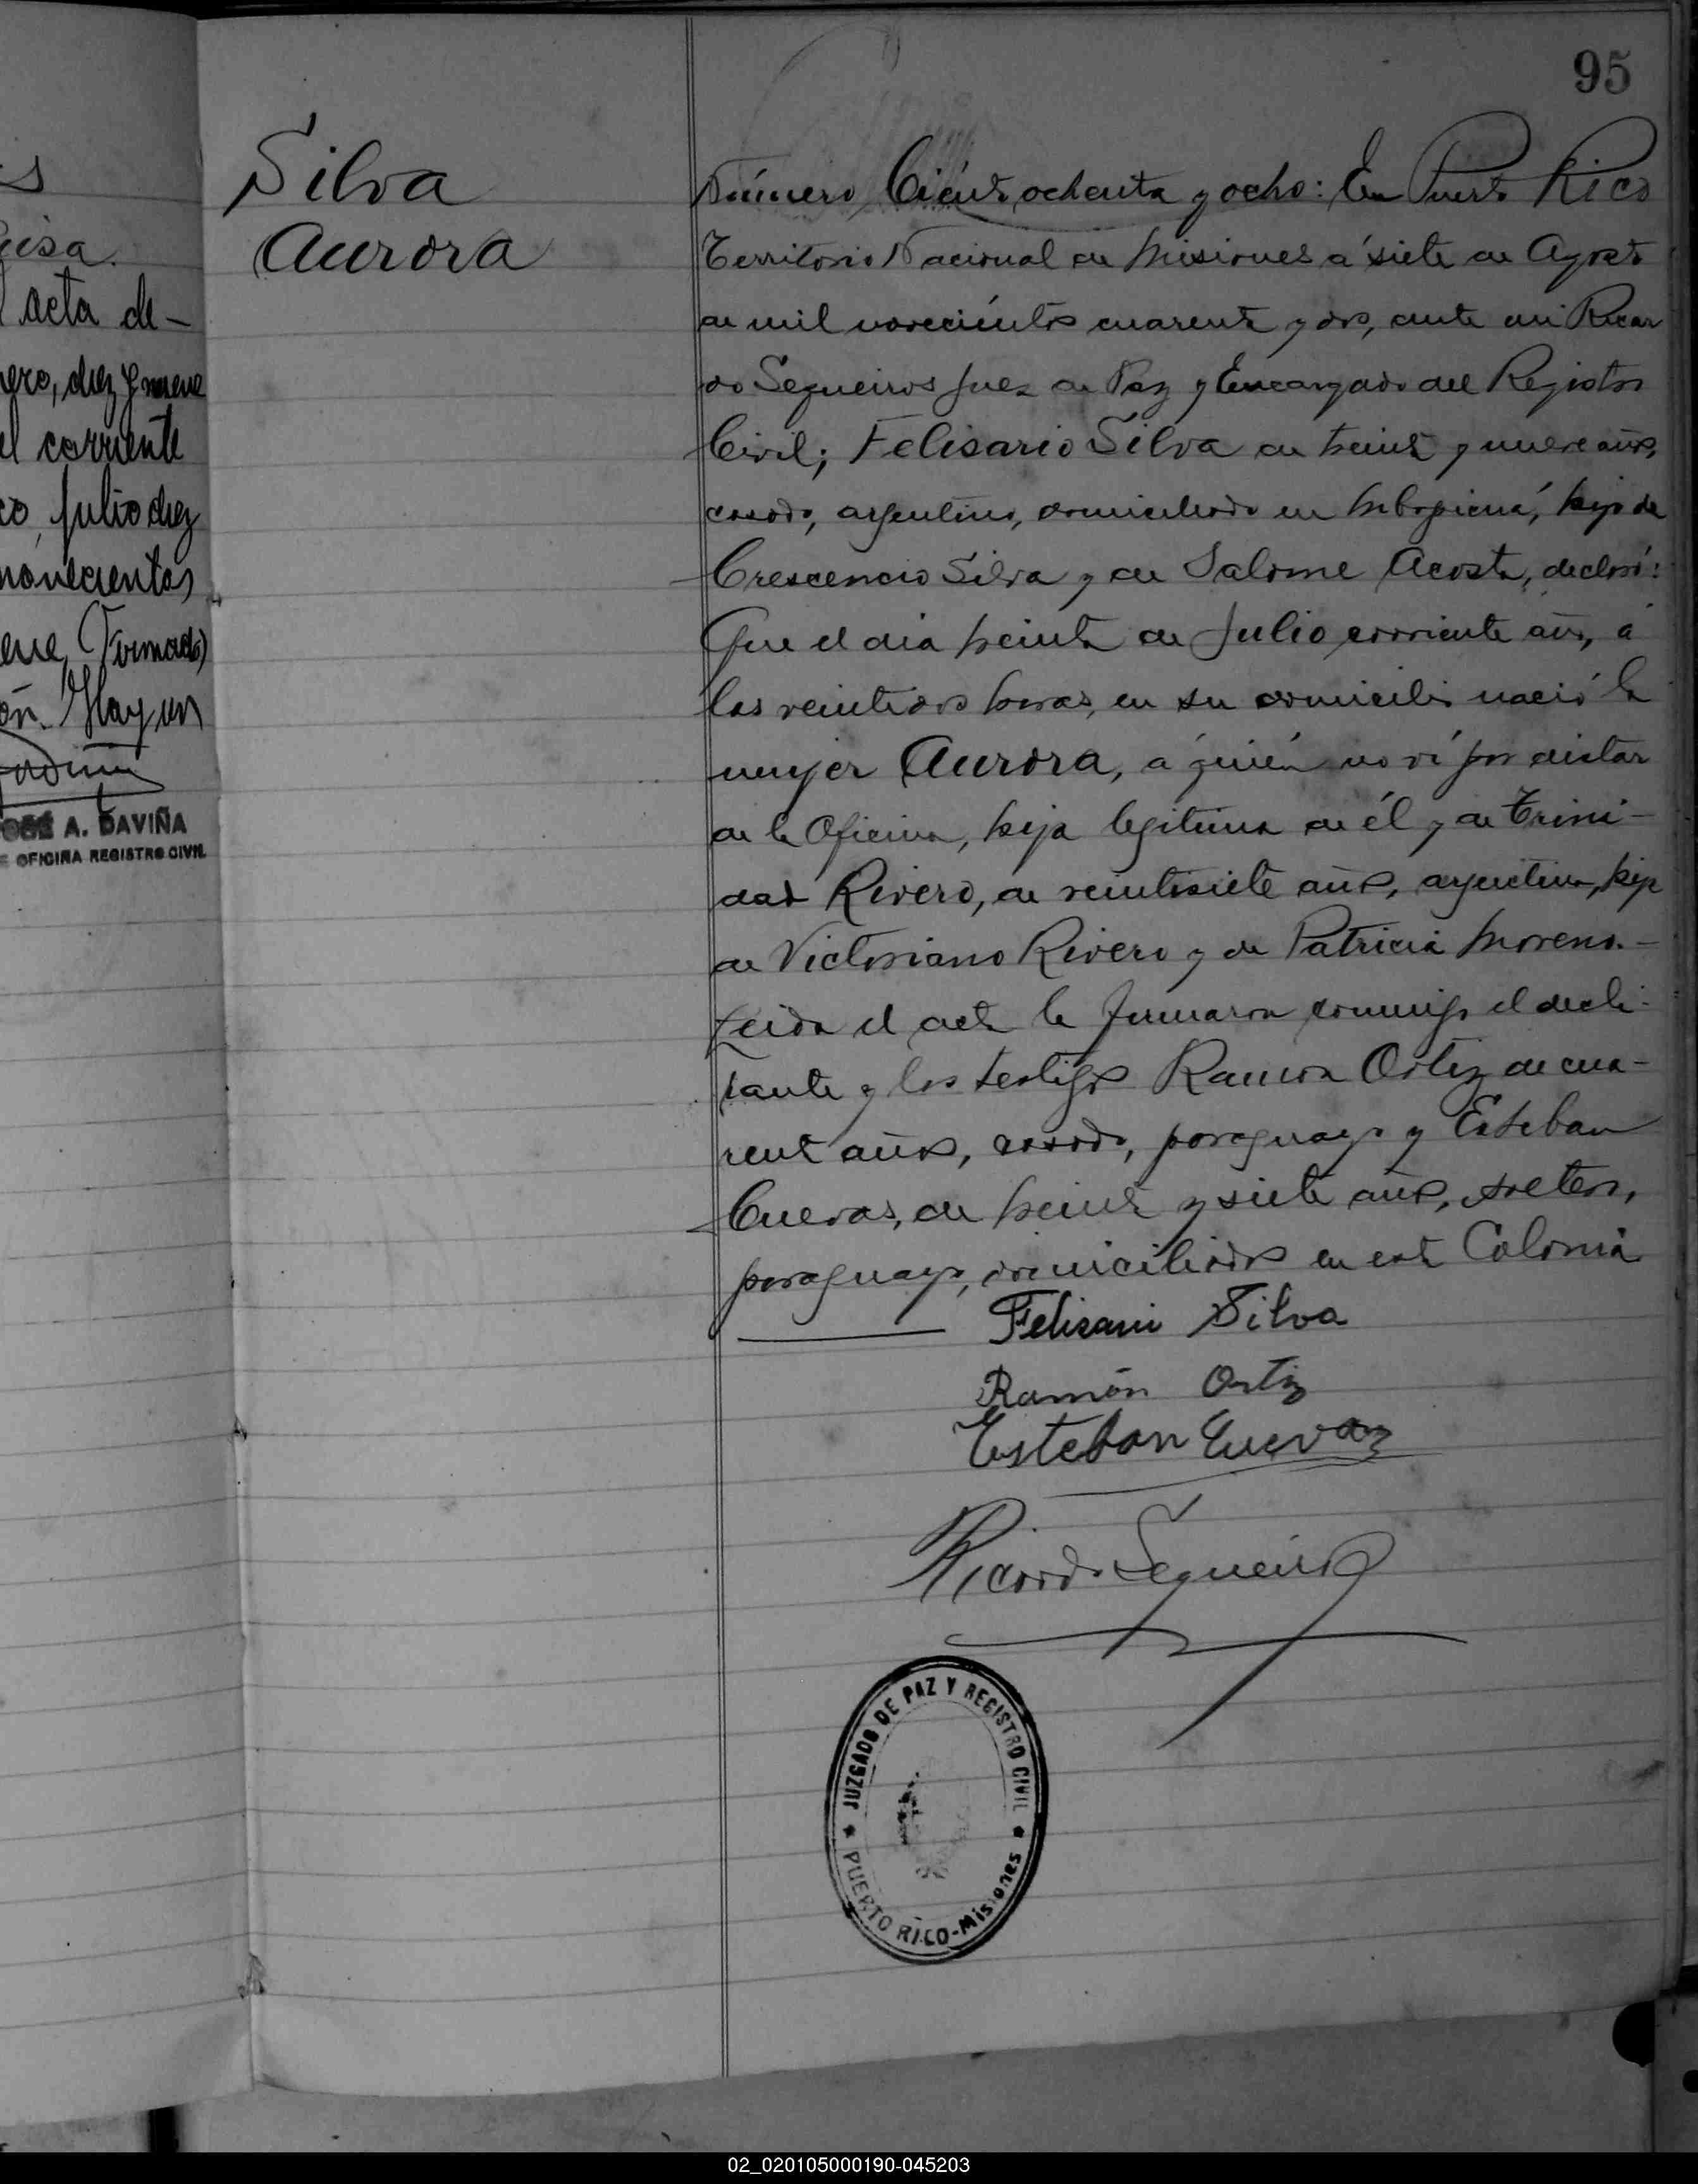 95
s
uisa.
acta de-
nero, diez y nueve
el corriente
co, julio diez
novecientos
(Firmado)
ón. Hay un
JOSÉ A. DAVIÑA
OFICINA REGISTRO CIVIL
Silva
Aurora
Número Ciento ochenta y ocho: En Puerto Rico
Territorio Nacional de Misiones a siete de Agosto
de mil novecientos cuarenta y dos, ante mi Ricar
do Sequeiros Juez de Paz y Encargado del Registro
Civil; Felisario Silva de treinta y nueve años,
casado, argentino, domiciliado en hijo de
Crescencio Silva y de Salome Acosta, declaró:
Que el dia treinta de Julio corriente año, á
las veintidos horas, en su domicilio nació la
mujer Aurora, á quién no ví por distar
de la Oficina, hija legitima de él y de Trini-
dad Rivero, de veintisiete años, argentina, hija
de Victoriano Rivero y de Patricia Moreno.-
Leida el acta la firmaron conmigo el decla-
rante y los testigos Ramon Ortiz de cua-
renta años, casado, paraguayo y Esteban
Cuevas, de treinta y siete años, soltero,
paraguayo, domiciliados en esta Colonia
Felisario Silva
Ramón Ortiz
Esteban Cuevas
Ricardo Sequeiros
JUZGADO DE PAZ Y REGISTRO CIVIL
PUERTO RICO-Misiones
02_020105000190-045203